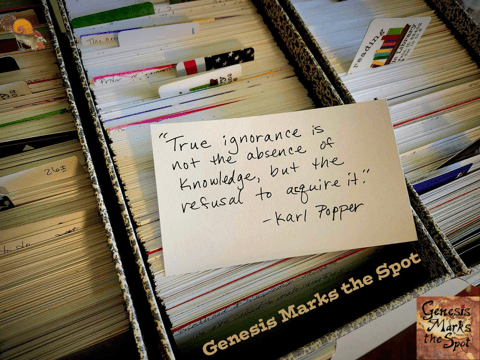 "True ignorance is
not the absence of
knowledge, but the
refusal to acquire it."
-Karl Popper
reading
Genesis Marks the Spot
Genesis
Marks
the Spot